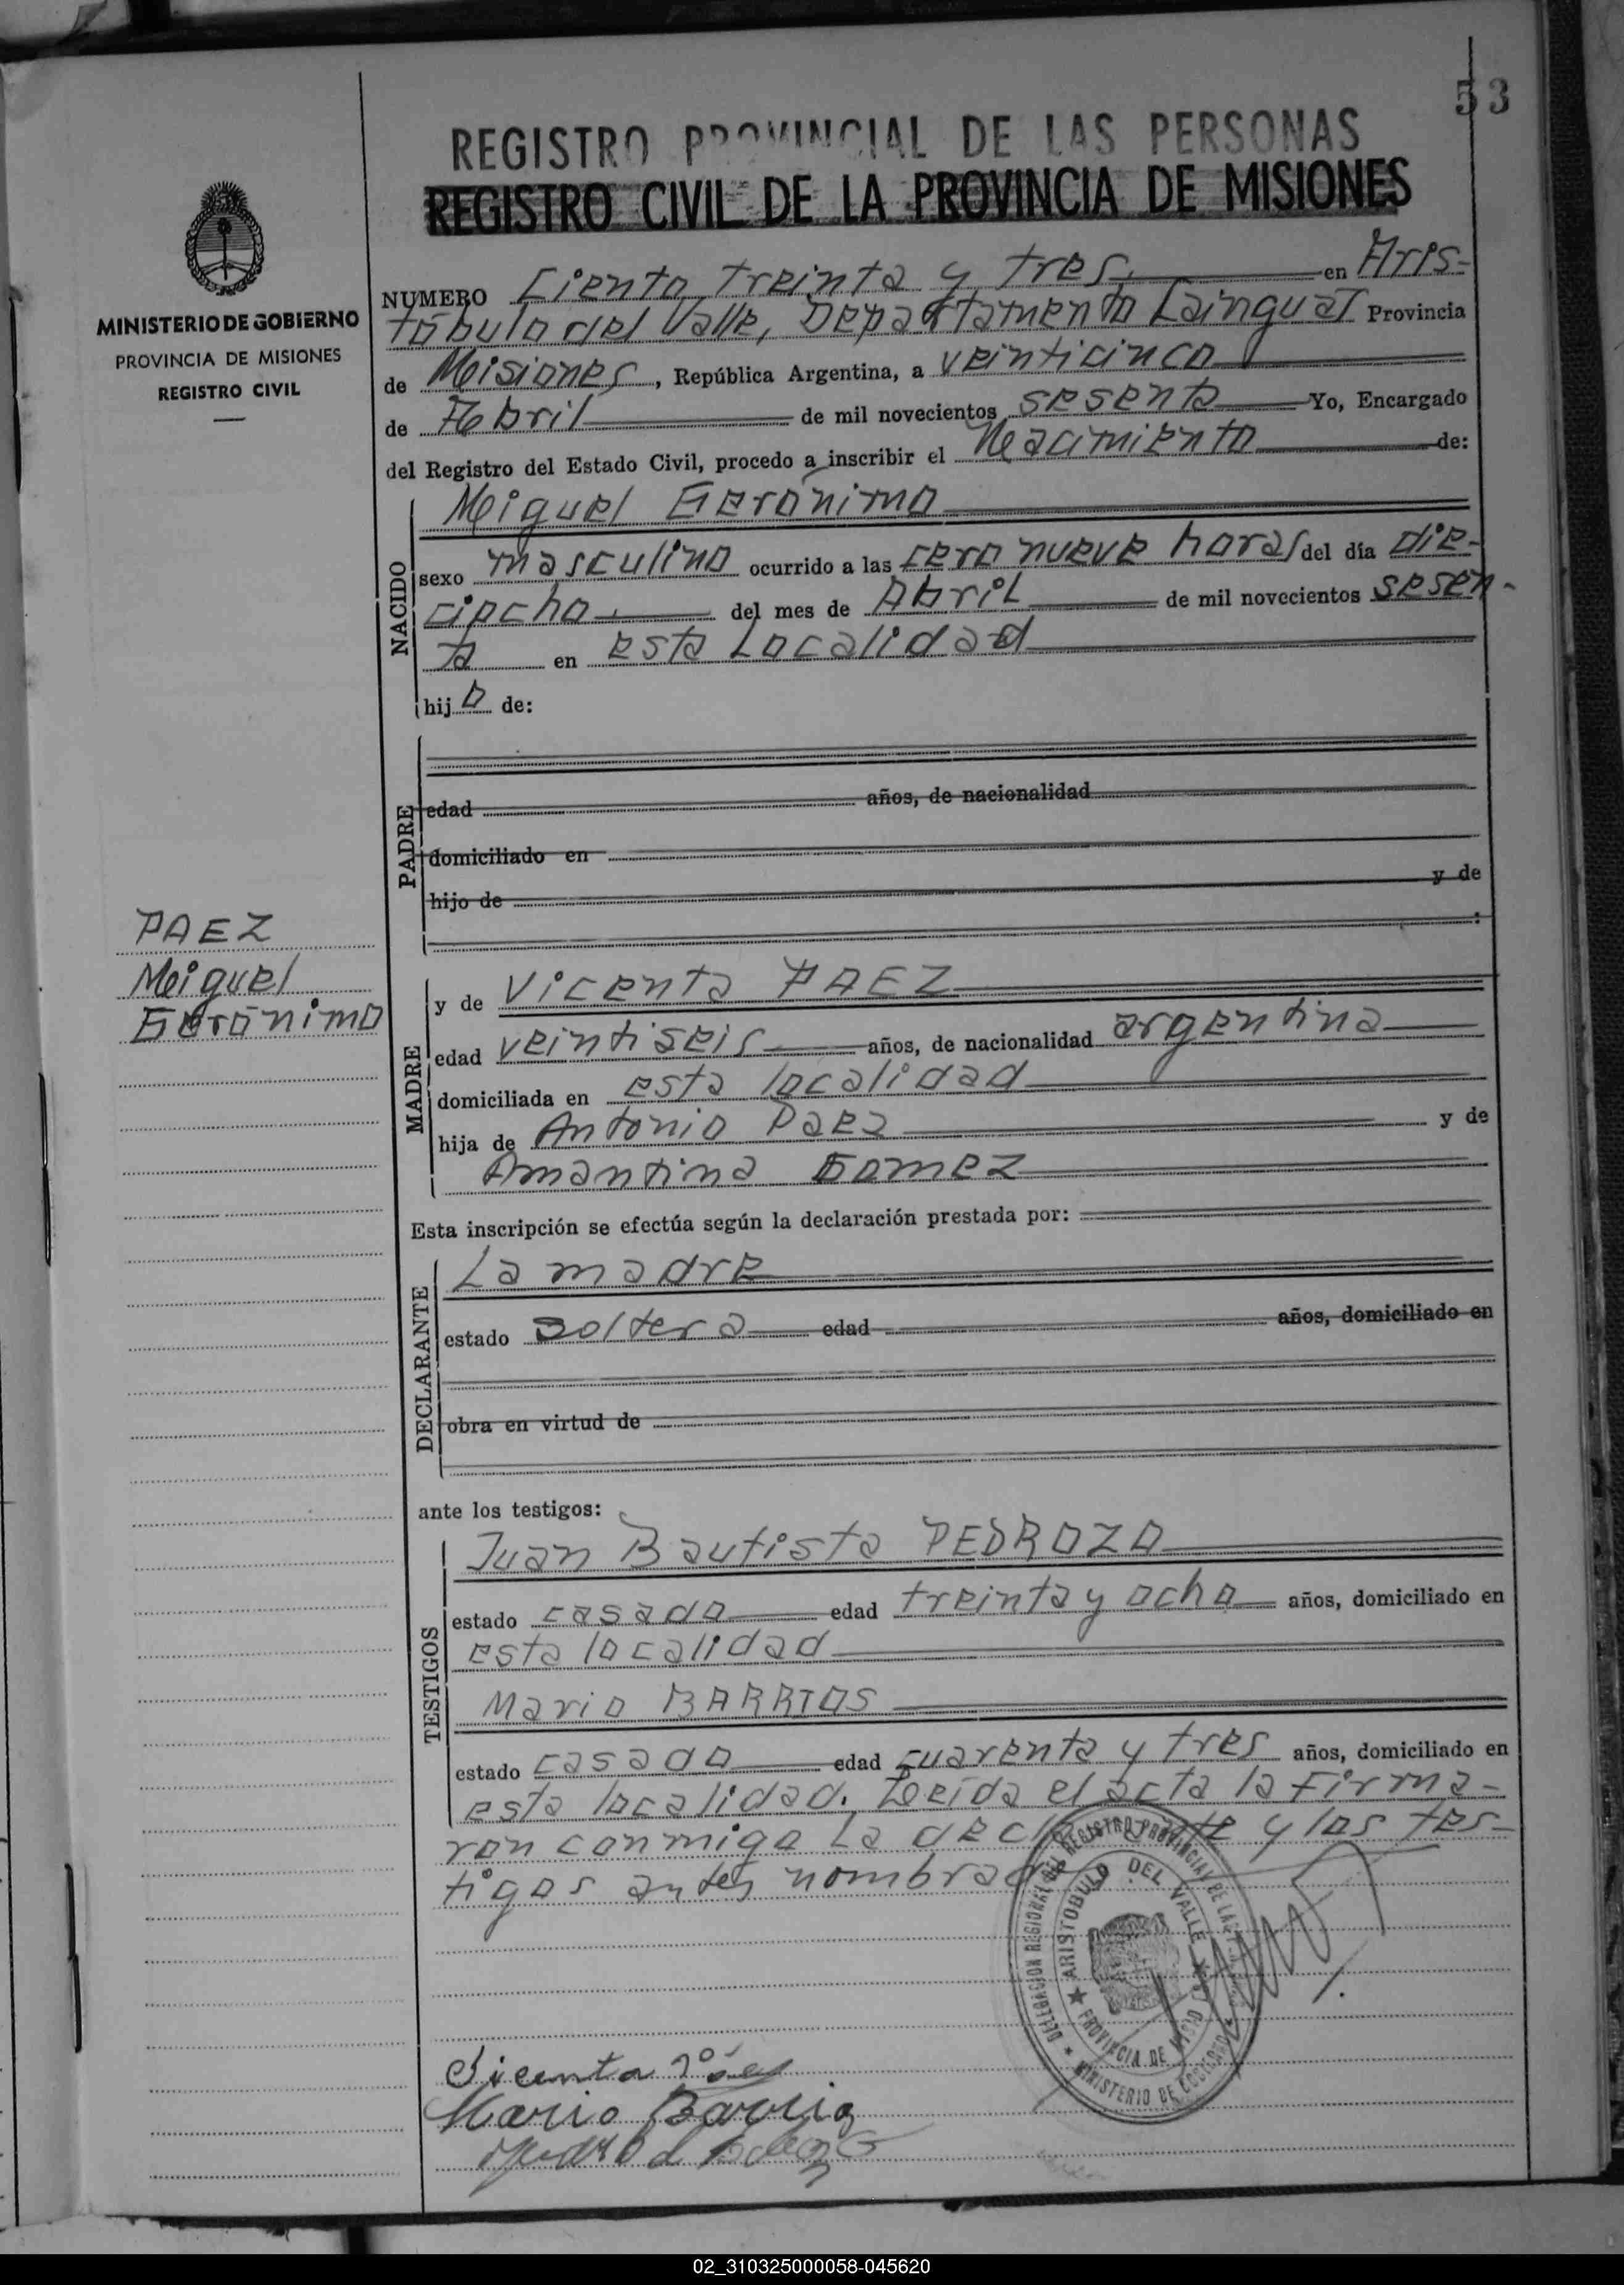 53
REGISTRO PROVINCIAL DE LAS PERSONAS
REGISTRO CIVIL DE LA PROVINCIA DE MISIONES
MINISTERIO DE GOBIERNO
PROVINCIA DE MISIONES
REGISTRO CIVIL
NUMERO Ciento treinta y tres, en Aris-
tóbulo del Valle, Departamento Cainguás Provincia
de Misiones, República Argentina, a veinticinco
de Abril de mil novecientos sesenta Yo, Encargado
del Registro del Estado Civil, procedo a inscribir el Nacimiento de:
NACIDO
Miguel Gerónimo
sexo masculino ocurrido a las cero nueve horas del día die-
ciocho. del mes de Abril de mil novecientos sesen-
ta en esta Localidad
hijo de:
PADRE
edad años, de nacionalidad
domiciliado en
hijo de y de
PAEZ
Miguel
Gerónimo
MADRE
y de Vicenta PAEZ
edad veintiseis años, de nacionalidad argentina
domiciliada en esta localidad
hija de Antonio Paez y de
Amantina Gomez
Esta inscripción se efectúa según la declaración prestada por:
DECLARANTE
La madre
estado soltera edad años, domiciliado en
obra en virtud de
ante los testigos:
TESTIGOS
Juan Bautista PEDROZO
estado casado edad treinta y ocho años, domiciliado en
esta localidad
Mario BARRIOS
estado casado edad cuarenta y tres años, domiciliado en
esta localidad. Leída el acta la firma-
ron conmigo la declarante y los tes-
tigos antes nombrados
DELEGACION REGIONAL DEL REGISTRO PROVINCIAL DE LAS
ARISTOBULO DEL VALLE
PROVINCIA DE MISIONES
MINISTERIO DE GOBIERNO
Vicenta Páez
Mario Barrio
02_310325000058-045620